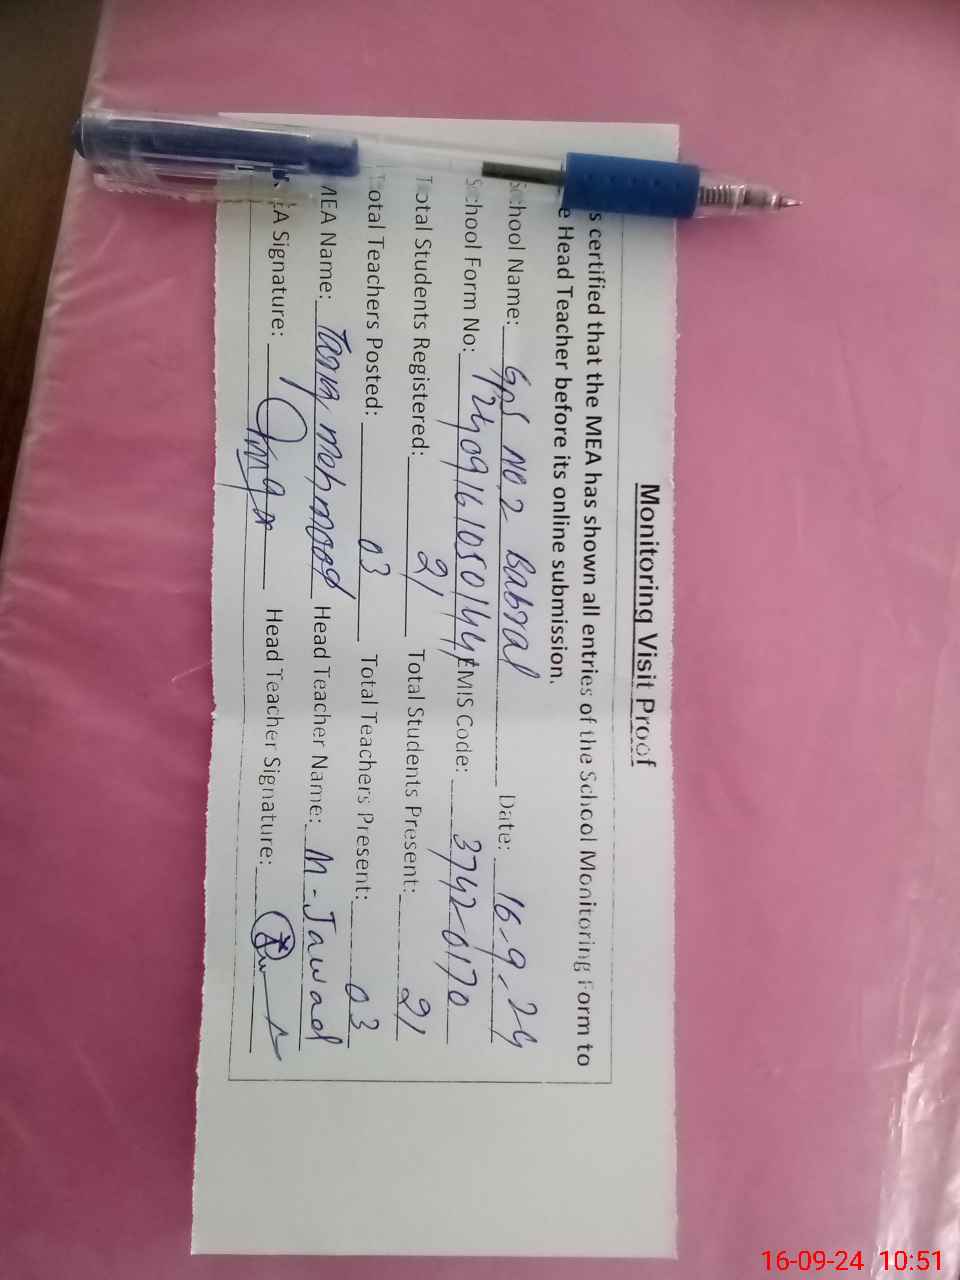 Monitoring Visit Proof
s certified that the MEA has shown all entries of the School Monitoring Form to
e Head Teacher before its online submission.
School Name: GPS NO.2 Babral Date: 16-9-24
School Form No: EMIS Code: 37420170
Total Students Registered: 21 Total Students Present: 21
Total Teachers Posted: 03 Total Teachers Present: 03
MEA Name: Tariq mehmood Head Teacher Name: M-Jawad
EA Signature: Head Teacher Signature:
16-09-24 10:51